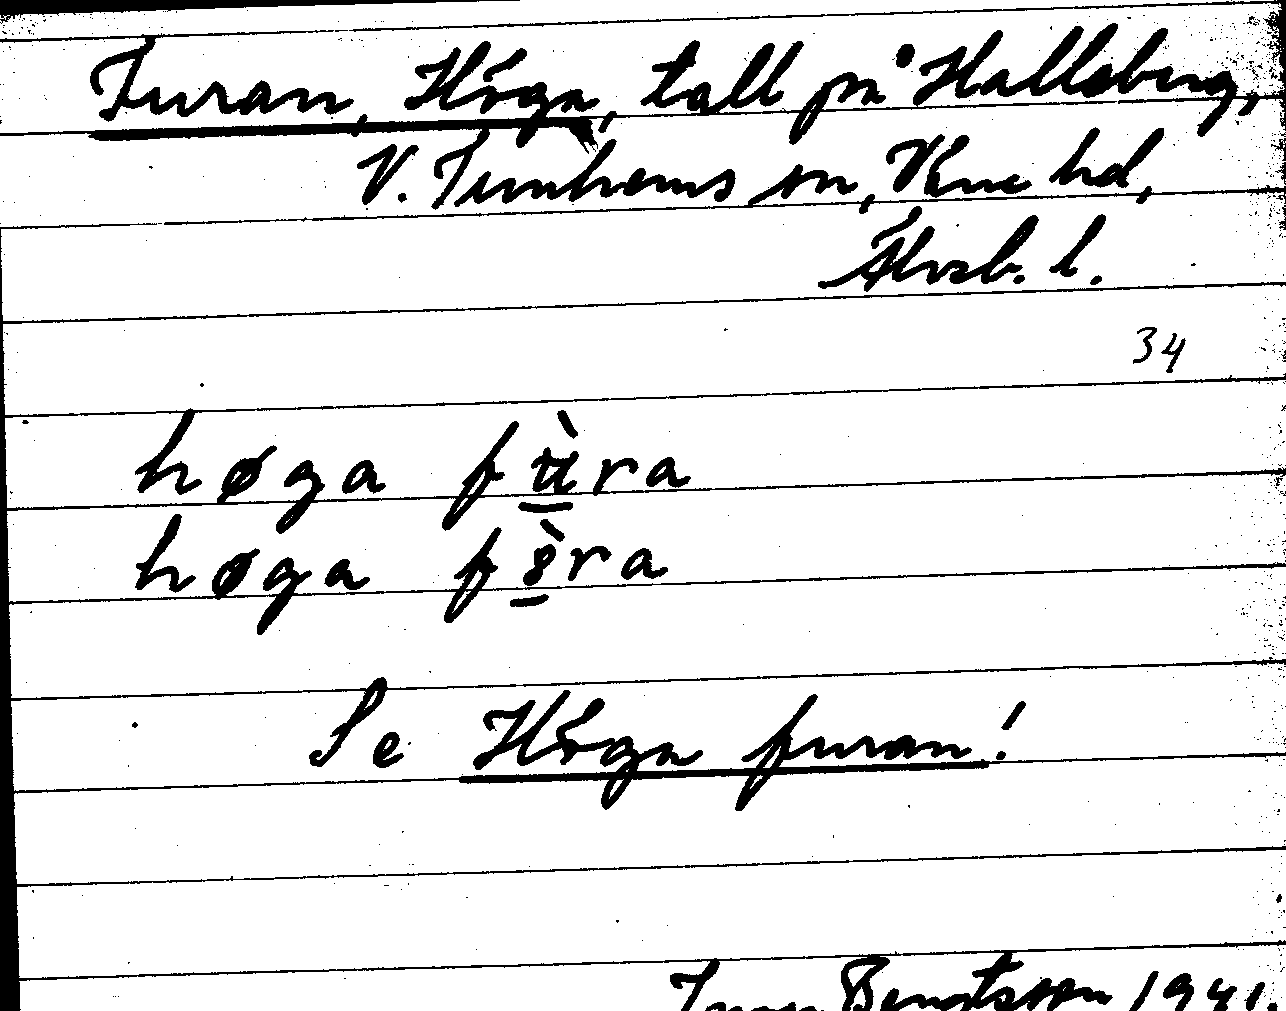 Furan, Höga, tall på Halleberg,
V. Tunhems sn, Väne hd,
Älvsb. l.
34
høga fùra
høga f8̀ra
Se Höga furan!
Bengtsson 1941.